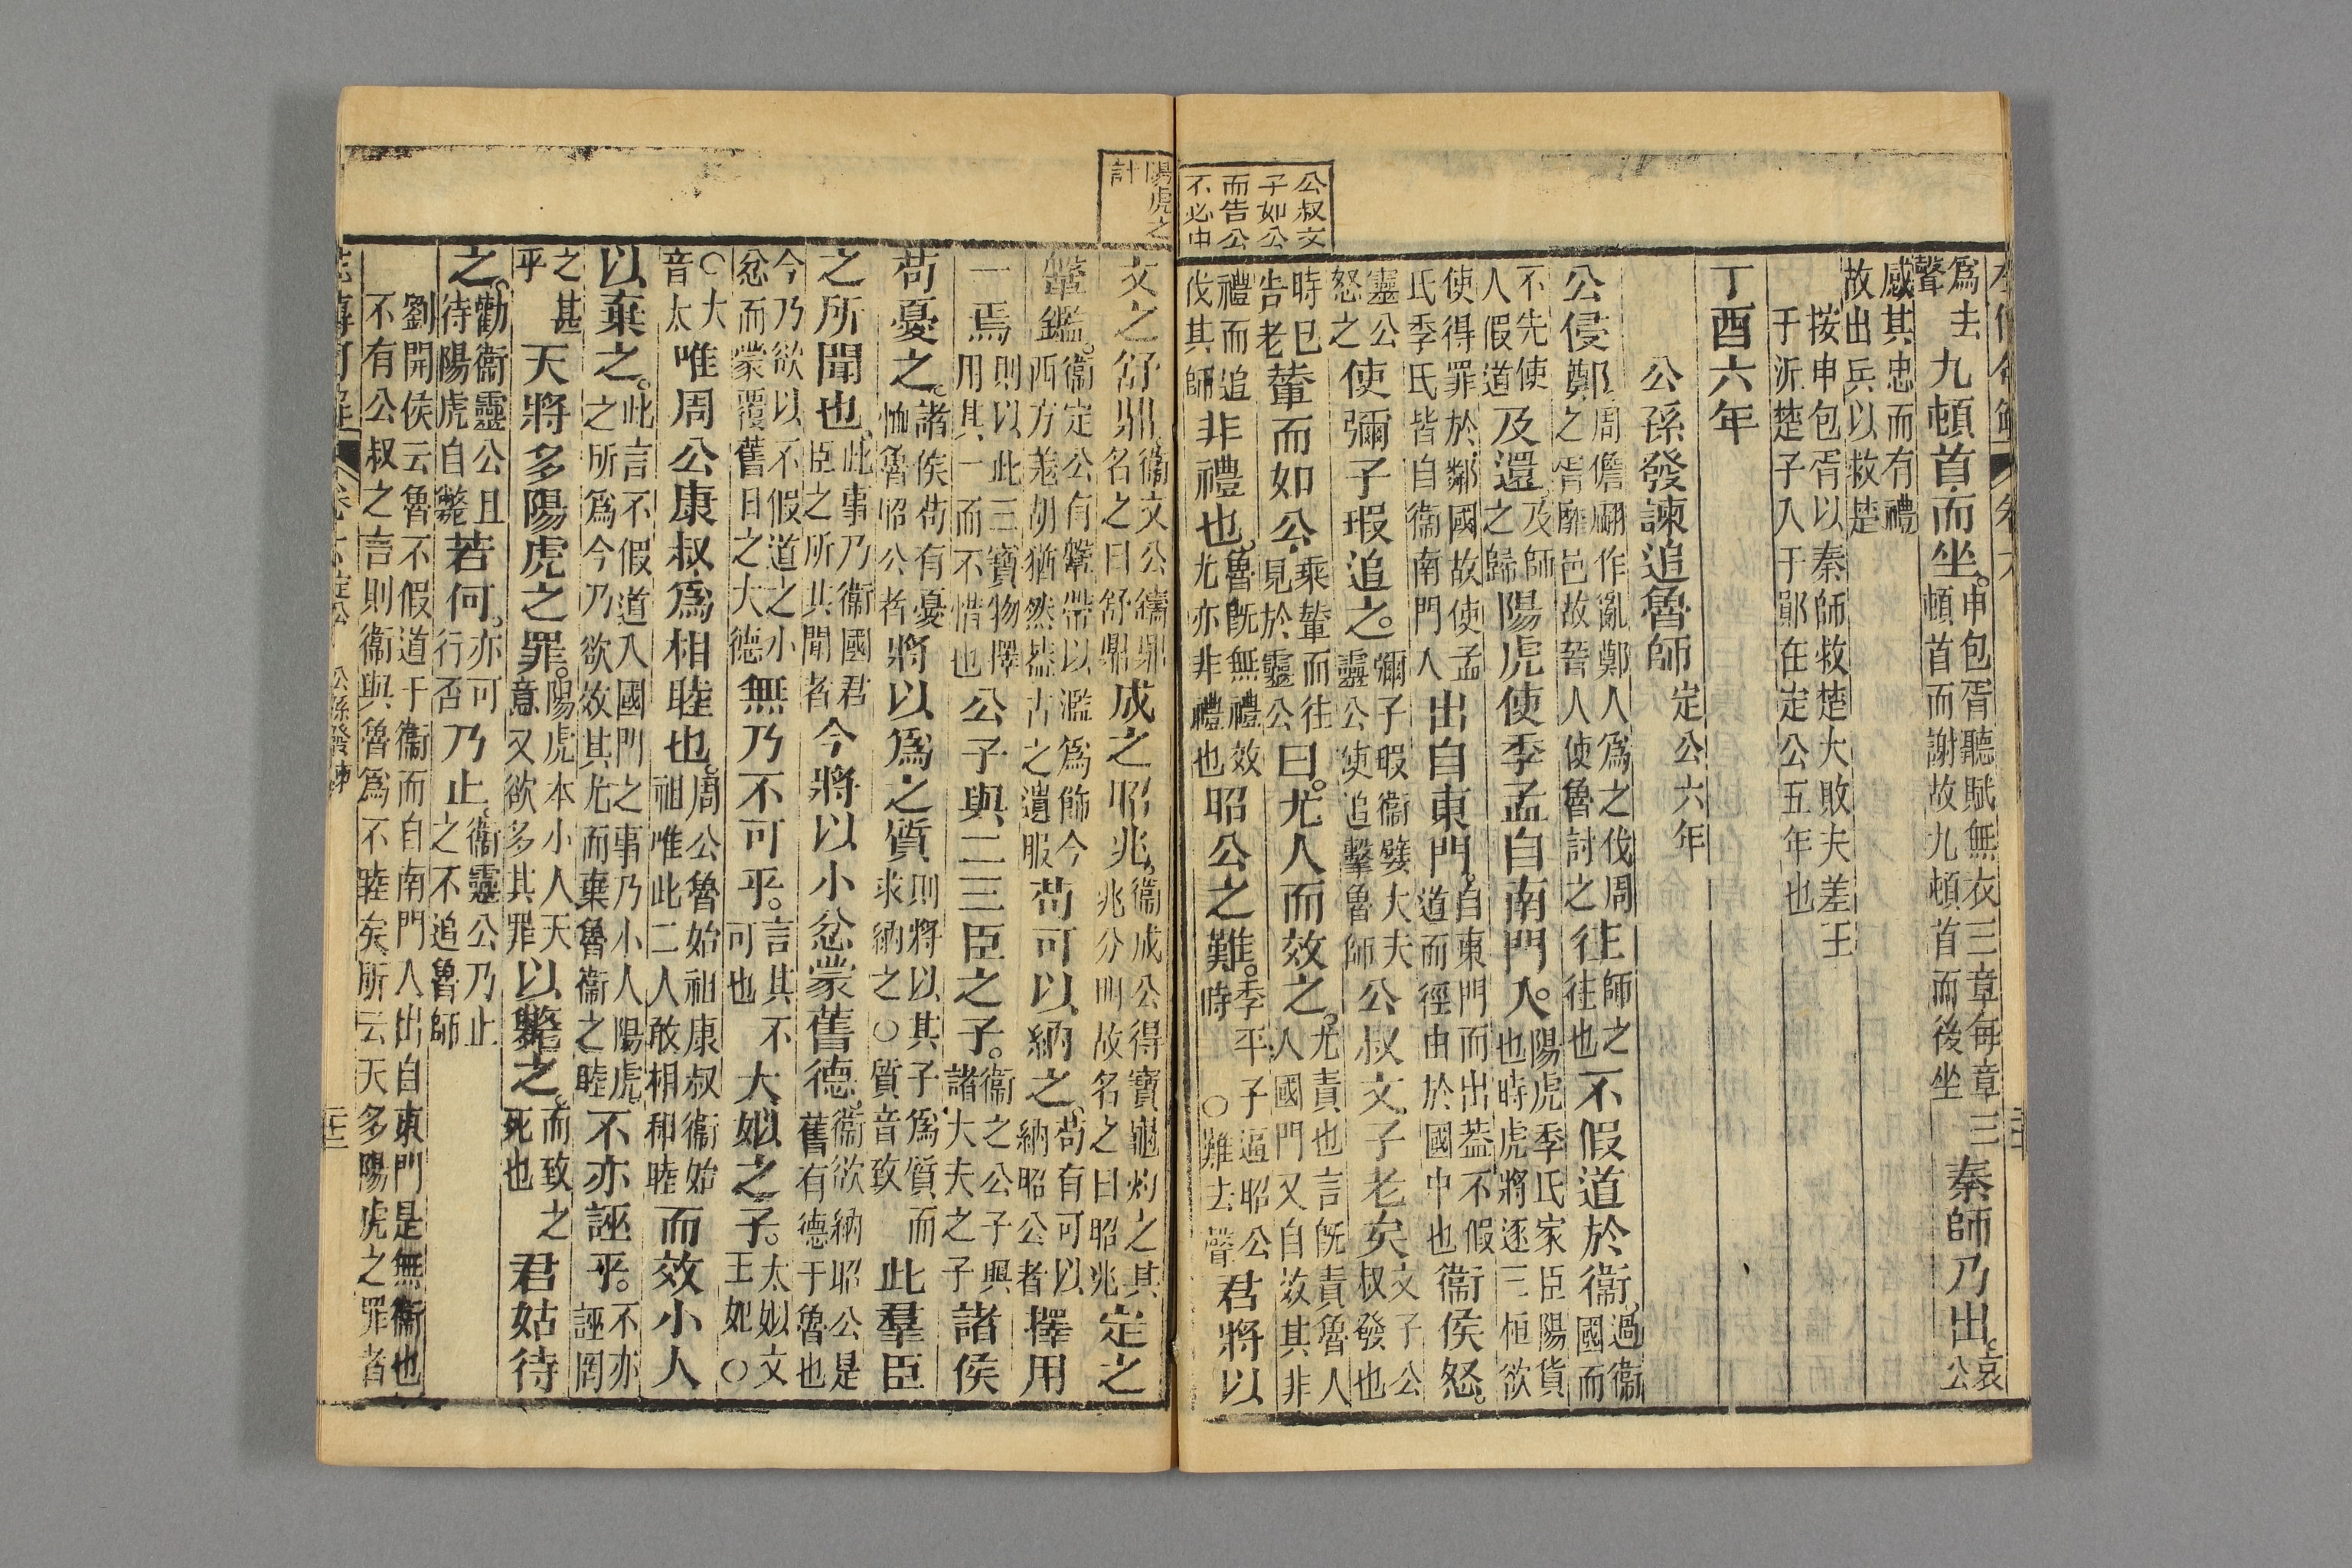 公叔文
子如公
而告公
不必中
爲去聲九頓首而坐。申包胥聽賦無衣三章每章三頓首而謝故九頓首而後坐秦師乃出。哀公
感其忠而有禮故出兵以救楚
按申包胥以秦師救楚大敗夫差王
于沂楚子入于郢在定公五年也
丁酉六年
公孫發諫追魯師定公六年
公侵鄭周儋翩作亂鄭人爲之伐周之胥靡邑故晉人使魯討之往王師之往也不假道於衞過衞國而
不先使人假道及還及師之歸陽虎使季孟自南門入。陽虎季氏家臣陽貨也時虎將逐三桓欲
使得罪於鄰國故使孟氏季氏皆自衞南門入出自東門自東門而出蓋不假道而徑由於國中也衞侯怒。
靈公怒之使彌子瑕追之。彌子瑕衞嬖大夫靈公使追擊魯師公叔文子老矣文子公叔發也
時已告老輦而如公乘輦而往見於靈公曰。尤人而效之。尤責也言旣責魯人入國門又自效其非
禮而追伐其師非禮也。魯旣無禮效尤亦非禮也昭公之難。季平子逼昭公時○難去聲君將以
陽虎之
計
文之舒鼎衞文公鑄鼎名之曰舒鼎成之昭兆衞成公得寶龜灼之其兆分明故名之曰昭兆定之
鞶鑑。衞定公有鞶帶以鑑爲飾今西方羗胡猶然蓋古之遺服苟可以納之苟有可以納昭公者擇用
一焉則以此三寶物擇用其一而不惜也公子與二三臣之子。衞之公子與諸大夫之子諸侯
苟憂之。諸侯苟有憂恤魯昭公者將以爲之質則將以其子爲質而求納之○質音致此羣臣
之所聞也此事乃衞國君臣之所共聞者今將以小忿蒙舊德。衞欲納昭公是舊有德于魯也
今乃欲以不假道之小忿而蒙覆舊日之大德無乃不可乎。言其不可也大姒之子。太姒文王妃○
○大音太唯周公康叔爲相睦也。周公魯始祖康叔衞始祖唯此二人敢相和睦而效小人
以棄之。此言不假道入國門之事乃小人陽虎之所爲今乃欲效其尤而棄魯衞之睦不亦誣乎。不亦誣罔
之甚乎天將多陽虎之罪。陽虎本小人天意又欲多其罪以斃之。而致之死也君姑待
之。勸衞靈公且待陽虎自斃若何。亦可行否乃止。衞靈公乃止之不追魯師
劉開侯云魯不假道于衞而自南門入出自東門是無衞也
不有公叔之言則衞與魯爲不睦矣所云天多陽虎之罪者